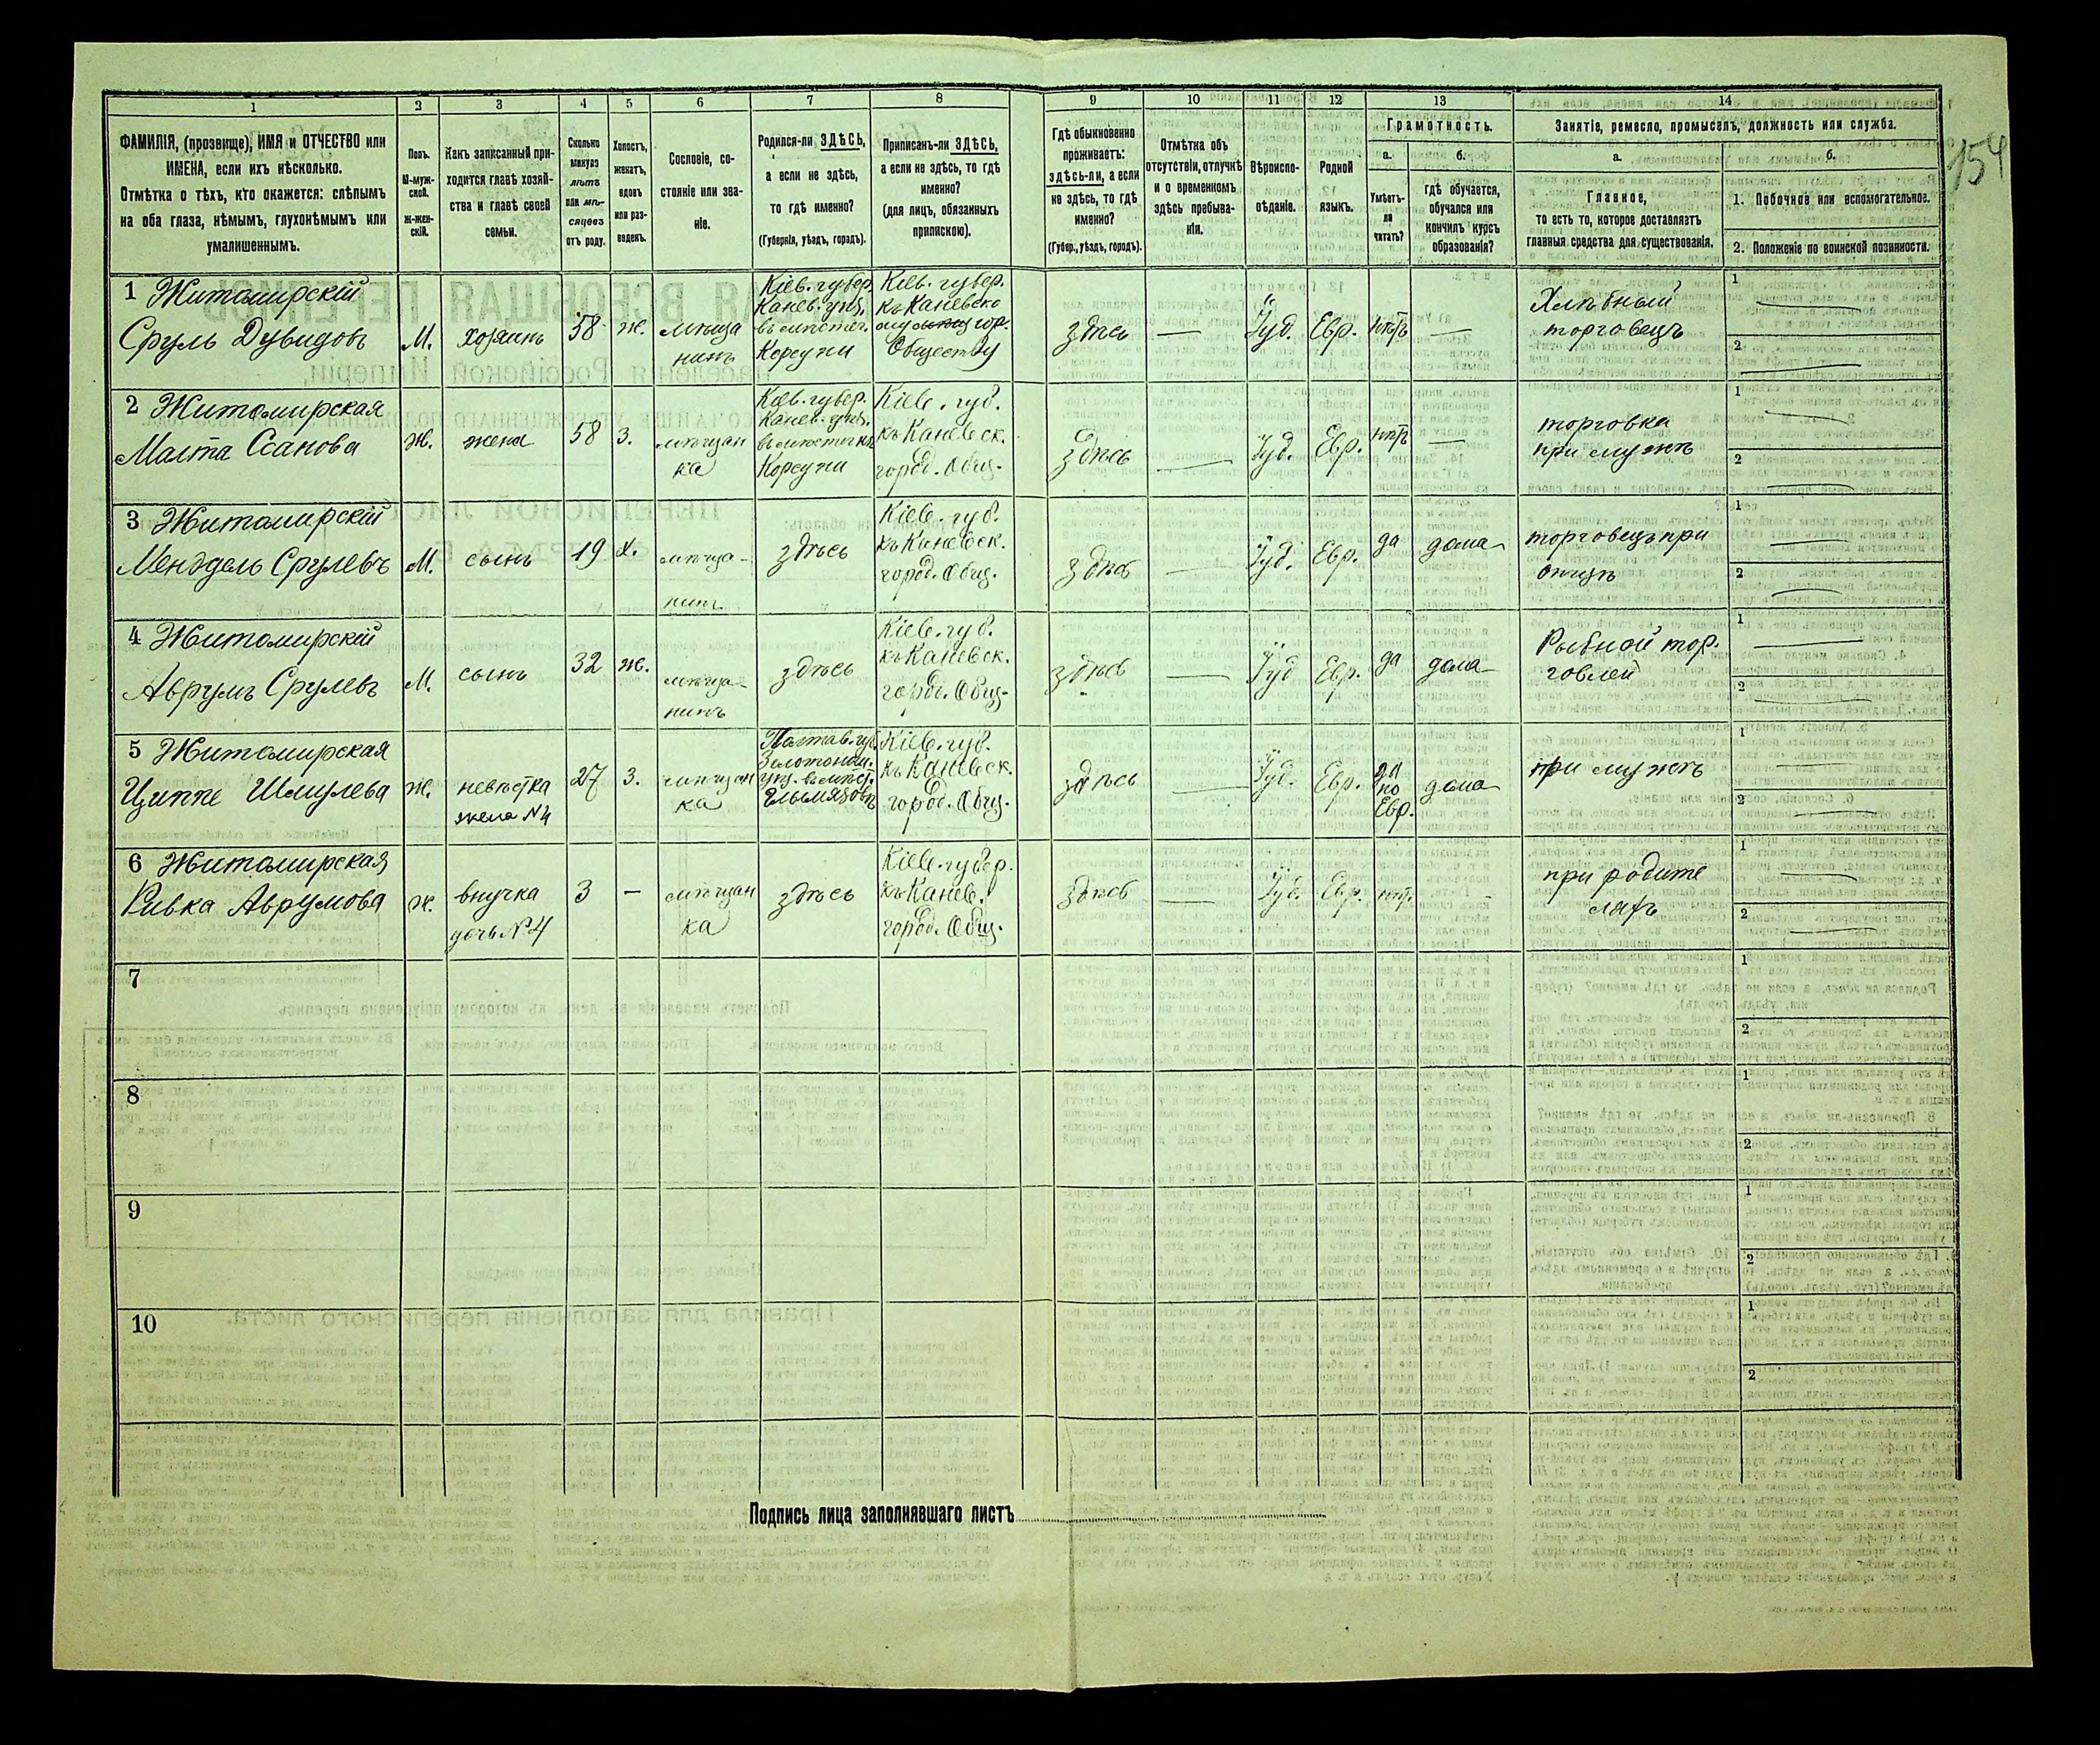 1 2 3 4 5 6 7 8 9 10 11 12 13 14
ФАМИЛІЯ, (прозвище), ИМЯ и ОТЧЕСТВО или
ИМЕНА, если ихъ нѣсколько.
Отмѣтка о тѣхъ, кто окажется: слѣпымъ
на оба глаза, нѣмымъ, глухонѣмымъ или
умалишеннымъ.
Полъ.
М-муж-
ской.
Ж-жен-
скій.
Какъ записанный при-
ходится главѣ хозяй-
ства и главѣ своей
семьи.
Сколько
минуло
лѣтъ
или мѣ-
сяцевъ
отъ роду.
Холостъ,
женатъ,
вдовъ
или раз-
веденъ.
Сословіе, со-
стояніе или зва-
ніе.
Родился-ли ЗДѢСЬ,
а если не здѣсь,
то гдѣ именно?
(Губернія, уѣздъ, городъ).
Приписанъ-ли ЗДѢСЬ,
а если не здѣсь, то гдѣ
именно?
(для лицъ, обязанныхъ
припискою).
Гдѣ обыкновенно
проживаетъ:
здѣсь-ли, а если
не здѣсь, то гдѣ
именно?
(Губер., уѣздъ, городъ).
Отмѣтка объ
отсутствіи, отлучкѣ
и о временномъ
здѣсь пребыва-
ніи.
Вѣроиспо-
вѣданіе.
Родной
языкъ.
Грамотность.
а.
Умѣетъ-
ли
читать?
б.
гдѣ обучается,
обучался или
кончилъ курсъ
образованія?
Занятіе, ремесло, промыселъ, должность или служба.
а.
Главное,
то есть то, которое доставляетъ
главныя средства для существованія.
б.
1. Побочное или вспомогательное.
2. Положеніе по воинской повинности.
154
1 Житомирскій
Сруль Дувидовъ
М.
хозяинъ
58
ж.
мѣща
нинъ
Кіев. губер.
Канев. уѣз.
въ мѣстеч.
Корсуни
Кіев. губер.
къ Каневско
му гор.
Обществу
здѣсь
—
Іуд.
Евр.
нѣтъ
—
Хлѣбный
торговецъ
1 —
2 —
2 Житомирская
Малта Ссанова
Ж.
жена
58
З.
мѣщан
ка
Кіев. губер.
Канев. уѣз.
въ мѣстечкѣ
Корсуни
Кіев. губ.
къ Каневск.
город. Общ.
здѣсь
—
Іуд.
Евр.
нѣтъ
—
торговка
при мужѣ
1 —
2 —
3 Житомирскій
Мендель Срулевъ
М.
сынъ
19
х.
мѣща-
нинъ
здѣсь
Кіев. губ.
къ Каневск.
город. Общ.
здѣсь
—
Іуд.
Евр.
да
дома
торговецъ при
отцѣ
1 —
2 —
4 Житомирскій
Аврумъ Срулевъ
М.
сынъ
32
ж.
мѣща-
нинъ
здѣсь
Кіев. губ.
къ Каневск.
город. Общ.
здѣсь
—
Іуд
Евр.
да
дома
Рыбной тор.
говлей
1 —
2 —
5 Житомирская
Циппе Шмулева
ж.
невѣстка
жена №4
27
З.
мѣщан
ка
Полтав. гу.
Золотонош.
уѣз. въ мѣст.
Гльмязовѣ
Кіев. губ.
къ Каневск.
город. Общ.
здѣсь
—
Іуд.
Евр.
да
по
Евр.
дома
при мужѣ
1 —
2 —
6 Житомирская
Ривка Аврумова
ж.
внучка
дочь №4
3
—
мѣщан
ка
здѣсь
Кіев. губер.
къ Канев.
город. Общ.
здѣсь
—
Іуд.
Евр.
нѣт.
-
при родите
ляхъ
1 —
2 —
7
1
2
8
1
2
9
1
2
10
1
2
Подпись лица заполнявшаго листъ